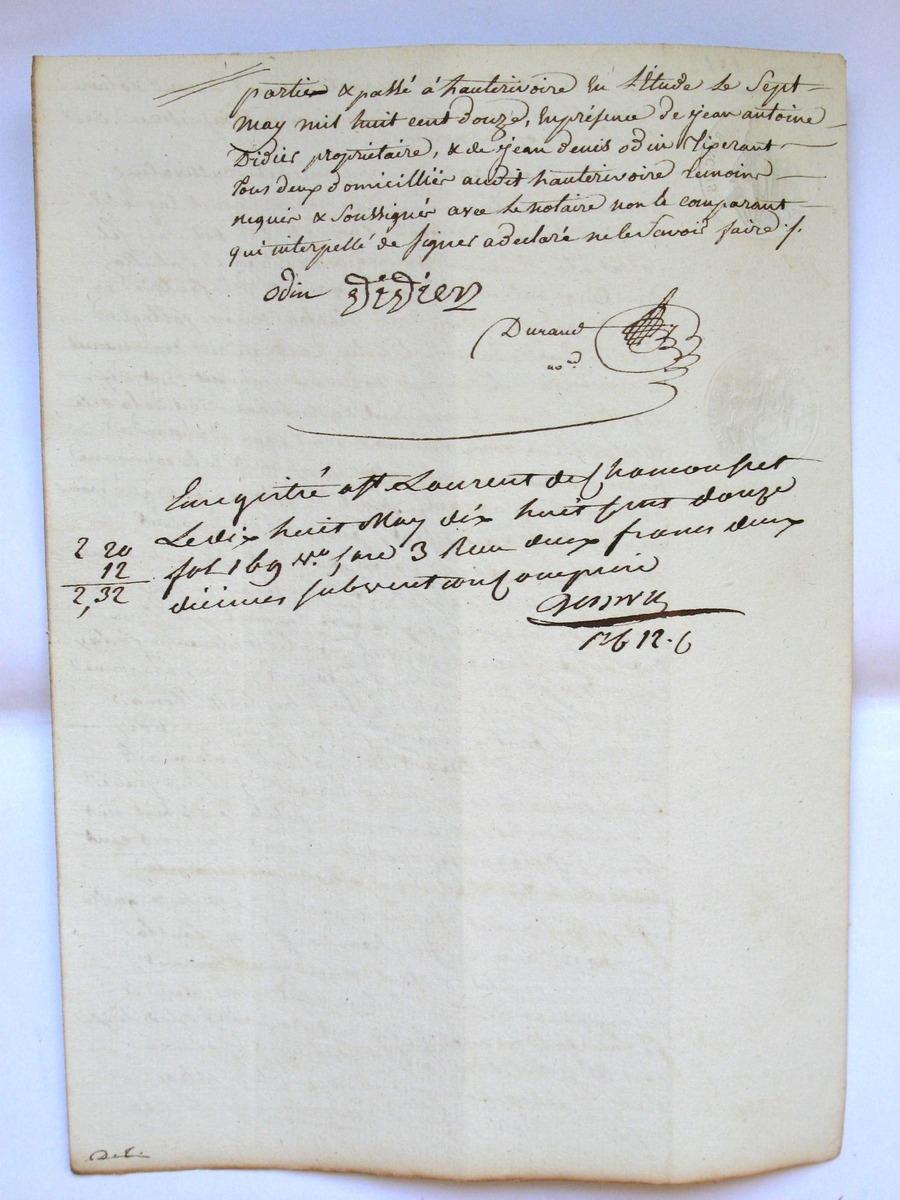 partie & passé à hauterivoire En l'Etude le Sept
may mil huit cent douze, En présence de jean antoine
Didier propriétaire, & de jean denis odin
tous deux domicilliés audit hauterivoire temoins
requis & soussignés avec le notaire non le comparant
qui interpellé de signer a declaré ne le savoir faire ./.
odin Didier
Durand
no.re
Enregistré à St Laurent de Chamousset
Le dix huit May dix huit cent douze
2 20 fol 169 v.o case 3 Reçu deux francs deux
12
2,32
décimes subvention comprise
12. 6